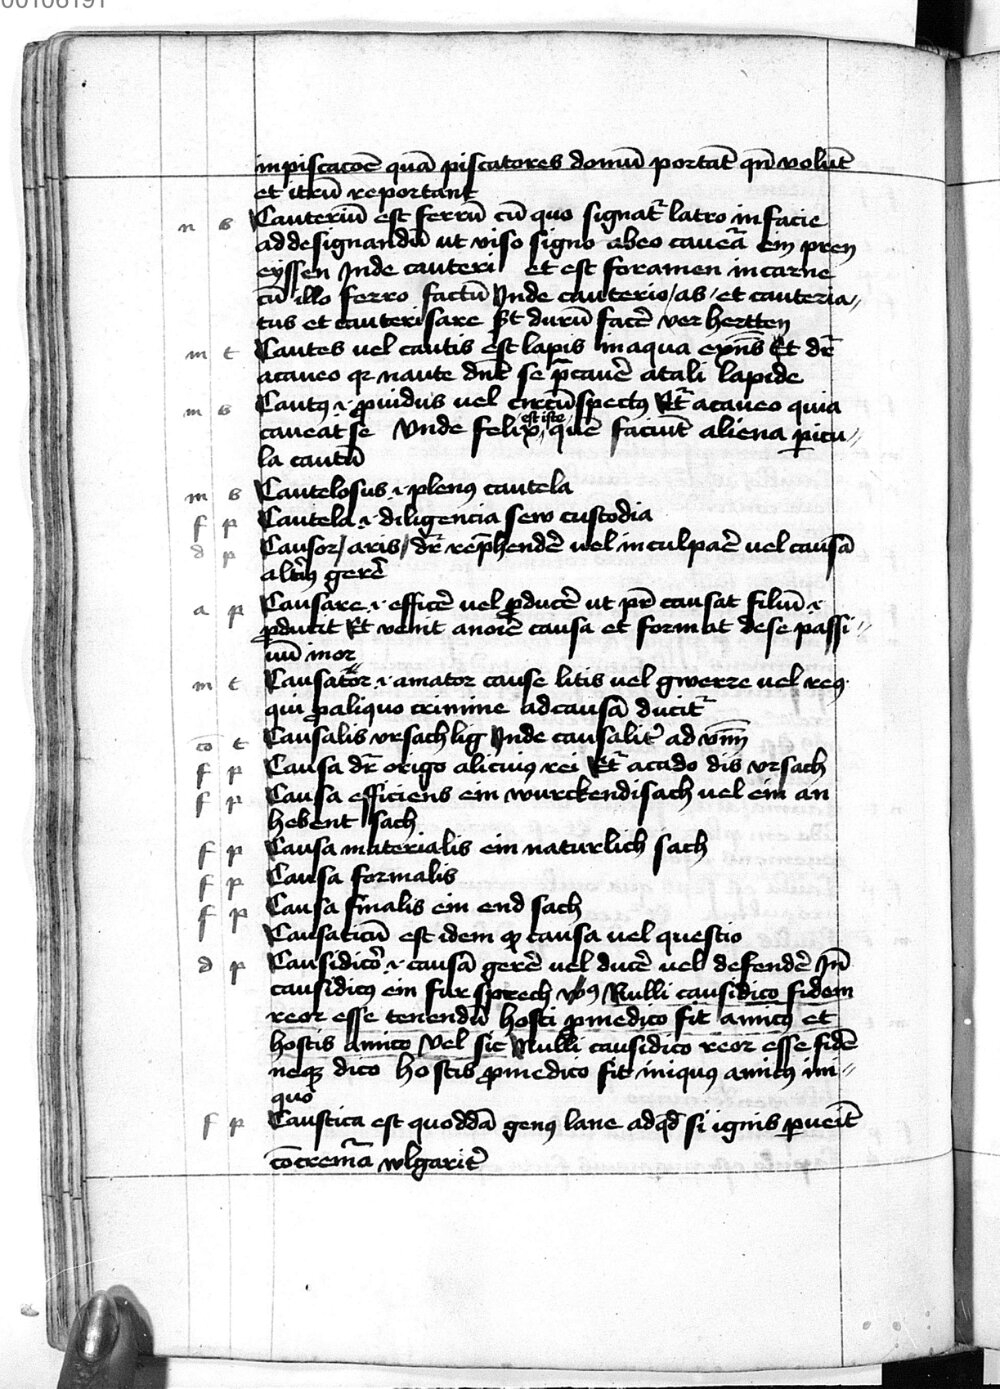 00106191
in piscacoē quā piscatores domū portāt qn̄ volūt
et iterū reportant
n s Cauteriū est ferrū cū quo signat͛ latro in facie
ad designandū ut viso signo abeo caveā ein pren
eyssen Inde cauteri et est foramen in carne
cū illo ferro factū Inde cauterio / as / et cauteria〃
tus et cauterisare durū facē ver hertten
m t Cautes vel cautis est lapis in aqua exn̄s Et dr̄
a caveo qr naute dn̄t se p̄cavē a tali lapide
m s Cautꝰ ·i· ꝓuidus vel circūspectꝰ Et͛ a caveo quia
caveat se Unde felix est iste quē faciūt aliena ꝑicu〃
la cautū
m s Cautelosus ·i· plenꝰ cautela
f p Cautela ·i· diligencia sew custodia
d p Causor / aris / dr̄ rep̄hendē vel inculpaē vel causā
altiꝰ gerē
a p Causare ·i· efficē vel ꝓducē ut pr̄ causat filiū ·i·
ꝓducit Et venit a noīe causa et format de se passi〃
uū inor
m t Causator ·i· amator cause litis vel gwerre vel reꝰ
qui ꝓ aliquo crimine ad causā ducit͛
cō t Causalis ursachlig Inde causalit͛
f p Causa dr̄ origo alicuiꝰ rei Et͛ a cado dis ursach
f p Causa efficiens ein wurckendi sach vel ein an
hebent sach
f p Causa materialis ein naturlich sach
f p Causa formalis
f p Causa finalis ein end sach
Causaticū est idem qꝫ causa vel questio
d p Causidico͛ ·i· causā gerē vel ducē vel defendē In̄
causidicꝰ ein fur sprech v̄sꝰ Nulli causidico fidem
reor esse tenendū hosti ꝓ medico fit amicꝰ et
hostis amico Vel sic Nulli causidico reor esse fidē
neqꝫ dico hostis ꝓ medico fit iniquꝰ amicꝰ ini〃
quo
f p Caustica est quoddā genꝰ lane ad qd̄ si ignis ꝑveīt
cōcremā wlgarit͛